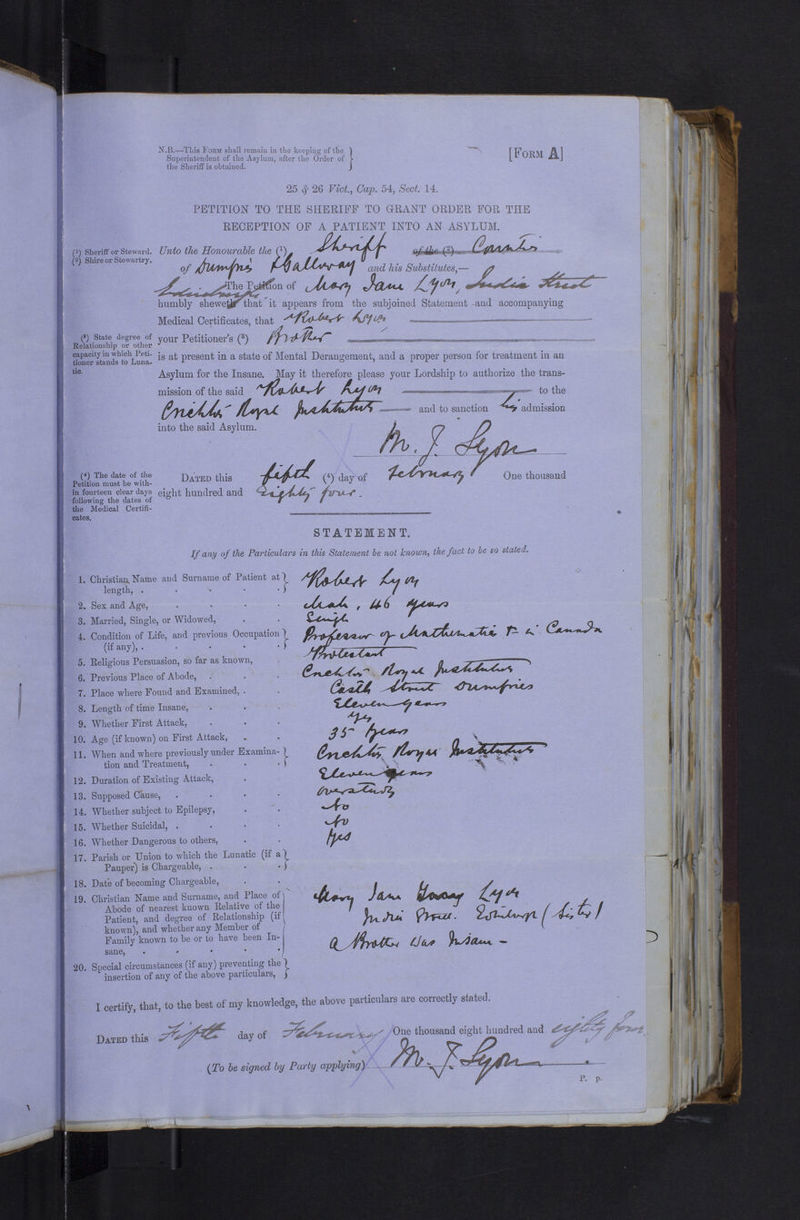 N.B.—This Form shall remain in the keeping of the
Superintendent of the Asylum, after the Order of
the Sheriff is obtained.
[Form A]
25 & 26 Vict., Cap. 54, Sect. 14.
PETITION TO THE SHERIFF TO GRANT ORDER FOR THE
RECEPTION OF A PATIENT INTO AN ASYLUM.
(¹) Sheriff or Steward.
(²) Shire or Stewartry.
Unto the Honourable the (¹) Sheriff of the (²) Counties
of Dumfries & Galloway and his Substitutes,—
The Petition of Mary Jane Lyon, India Street
Edinburgh
humbly sheweth that it appears from the subjoined Statement and accompanying
Medical Certificates, that Robert Lyon
(³) State degree of
Relationship or other
capacity in which Peti-
tioner stands to Luna-
tic.
your Petitioner's (³) Brother
is at present in a state of Mental Derangement, and a proper person for treatment in an
Asylum for the Insane. May it therefore please your Lordship to authorize the trans-
mission of the said Robert Lyon to the
Crichton Royal Institution and to sanction his admission
into the said Asylum.
M. J. Lyon
(⁴) The date of the
Petition must be with-
in fourteen clear days
following the dates of
the Medical Certifi-
cates.
Dated this fifth (⁴) day of February One thousand
eight hundred and eighty four.
STATEMENT.
If any of the Particulars in this Statement be not known, the fact to be so stated.
1. Christian Name and Surname of Patient at
length, . Robert Lyon
2. Sex and Age, Male, 46 years
3. Married, Single, or Widowed, Single
4. Condition of Life, and previous Occupation
(if any), . Professor of Mathematics in Canada
5. Religious Persuasion, so far as known, Protestant
6. Previous Place of Abode, . Crichton Royal Institution
7. Place where Found and Examined, . Castle Street Dumfries
8. Length of time Insane, Eleven years
9. Whether First Attack, Yes
10. Age (if known) on First Attack, 35 years
11. When and where previously under Examina-
tion and Treatment, Crichton Royal Institution
12. Duration of Existing Attack, Eleven years
13. Supposed Cause, . Overstudy
14. Whether subject to Epilepsy, No
15. Whether Suicidal, . No
16. Whether Dangerous to others, Yes
17. Parish or Union to which the Lunatic (if a
Pauper) is Chargeable, .
18. Date of becoming Chargeable, .
19. Christian Name and Surname, and Place of
Abode of nearest known Relative of the
Patient, and degree of Relationship (if
known), and whether any Member of
Family known to be or to have been In-
sane, .
Mary Jane Lyon
India Street. Edinburgh (Sister)
A Brother was Insane -
20. Special circumstances (if any) preventing the
insertion of any of the above particulars,
I certify, that, to the best of my knowledge, the above particulars are correctly stated.
Dated this Fifth day of February One thousand eight hundred and eighty four
(To be signed by Party applying) M. J. Lyon
P. p.